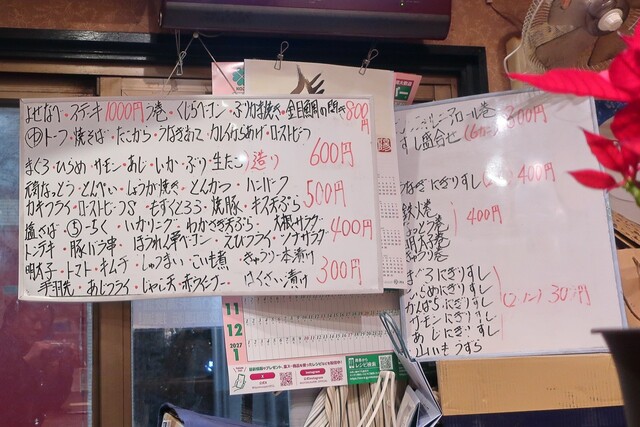 よせなべ・ステーキ1000円
くじらベーコン・ぶりかま焼き・金目鯛の開き800円
㊥トーフ・焼そば・たこから・うなぎあて・カレイからあげ・ローストビーフ
まぐろ・ひらめ・サーモン・あじ・いか・ぶり・生たこ(造り) 600円
とんぺい・しょうが焼き・とんかつ・ハンバーグ 500円
カキフライ・ローストビーフS・もずくとろろ・焼豚・キス天ぷら
塩さば・いかリング・わかさぎ天ぷら・大根サラダ 400円
トンテキ・豚バラ串・ほうれん草ベーコン・エビフライ・ツナサラダ
明太子・トマト・キムチ・しゅうまい・こい煮・きゅうり一本漬け 300円
手羽先・あじフライ・じゃこ天・赤ウインナー・はくさい漬け
すし盛合せ
うなぎにぎりすし 400円
鉄火巻 400円
なっとう巻
明太子巻
きゅうり巻
まぐろにぎりすし
ひらめにぎりすし
かんぱちにぎりすし
サーモンにぎりすし
あじにぎりすし
山いもうずら
11
12
2027
1